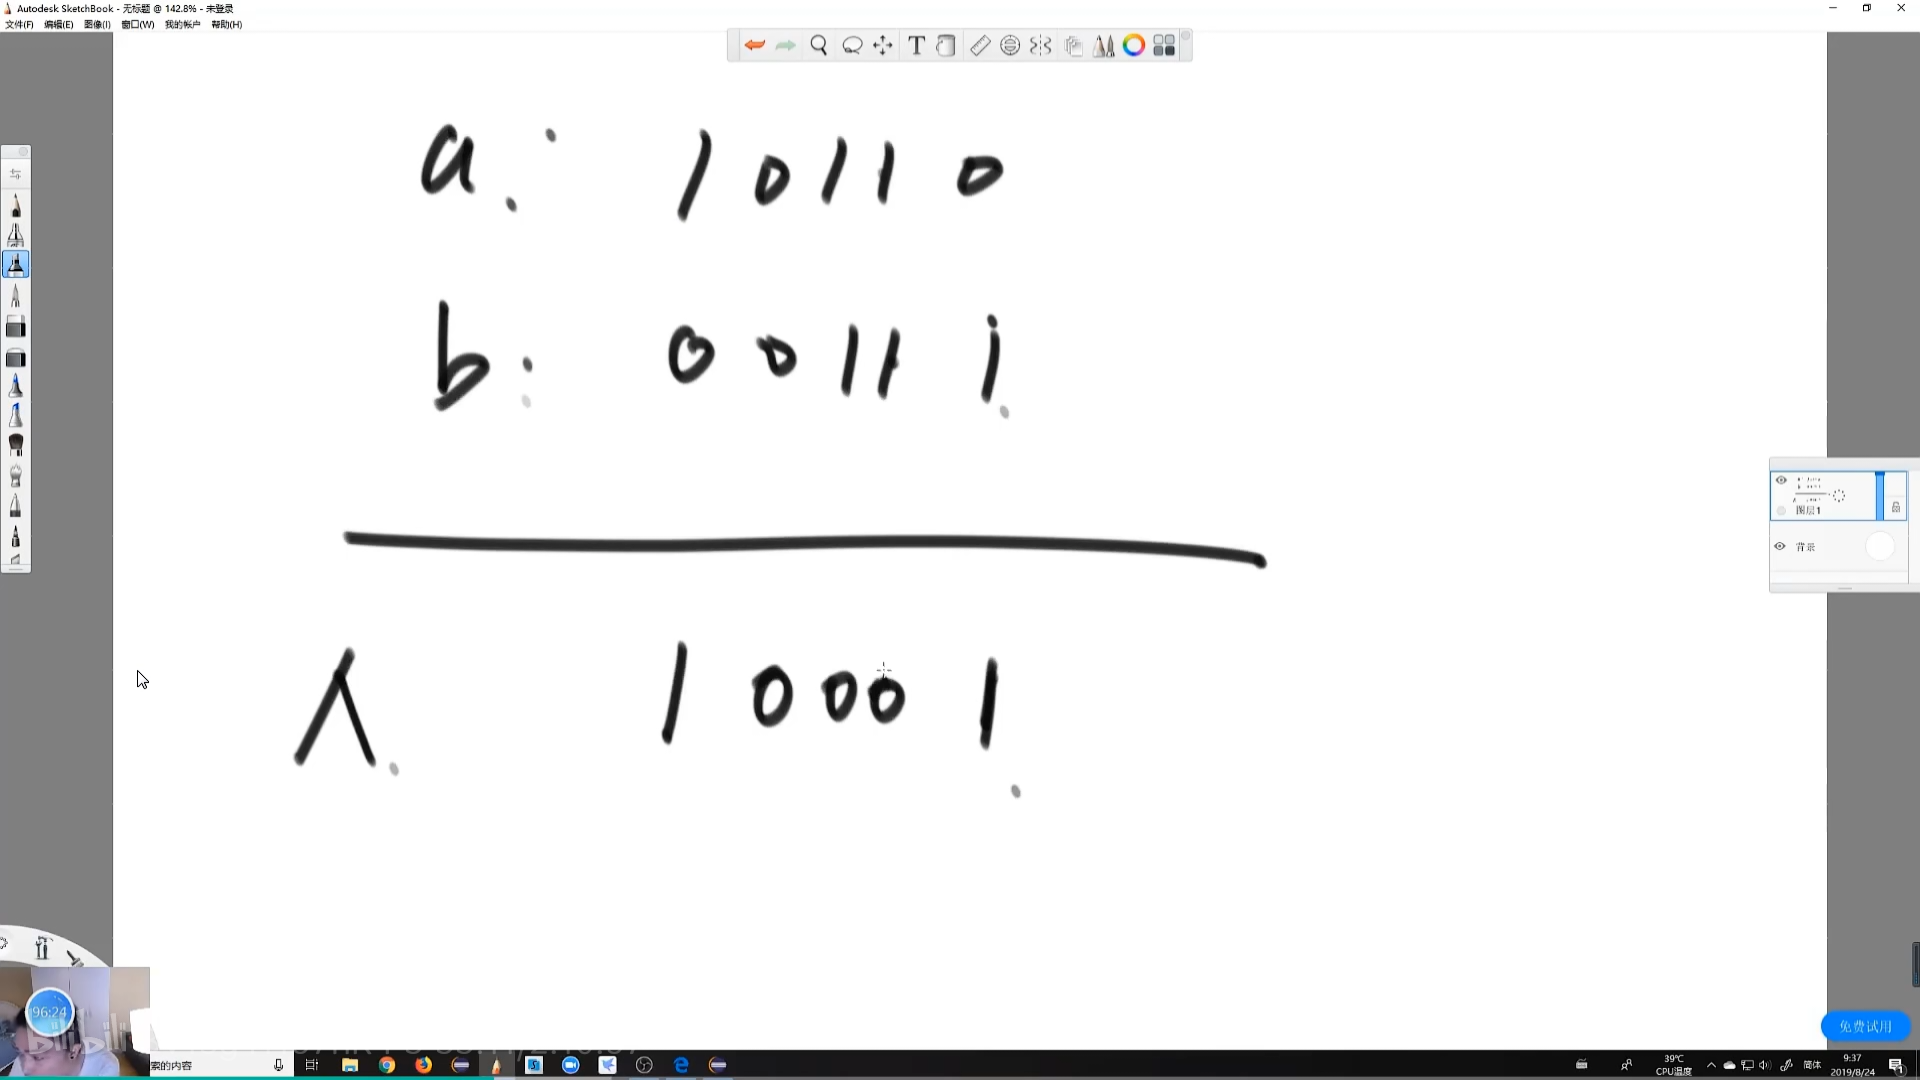 Autodesk SketchBook - 无标题 @ 142.8% - 未登录
文件(F) 编辑(E) 图像(I) 窗口(W) 我的帐户 帮助(H)
T
a: 10110
b: 00111
λ 10001
图层1
背景
96:24
bilibili
免费试用
索的内容
39℃
CPU温度
简体
9:37
2019/8/24